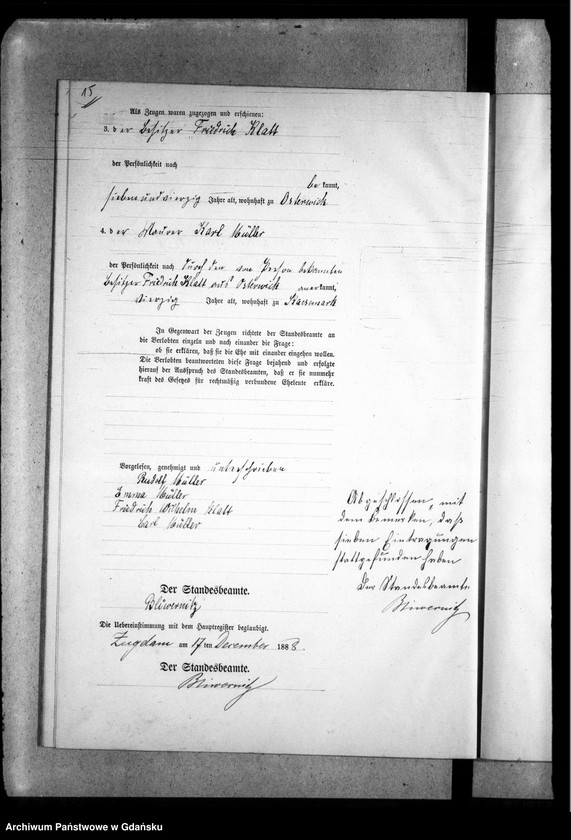 15
Als Zeugen waren zugezogen und erschienen:
3. der Besitzer Friedrich Klatt
der Persönlichkeit nach
be kannt,
siebenundvierzig Jahre alt, wohnhaft zu Osterwick
4. der Maurer Karl Müller
der Persönlichkeit nach durch den von Person bekannten
Besitzer Friedrich Klatt aus Osterwick anerkannt,
vierzig Jahre alt, wohnhaft zu Käsemark
In Gegenwart der Zeugen richtete der Standesbeamte an
die Verlobten einzeln und nach einander die Frage:
ob sie erklären, daß sie die Ehe mit einander eingehen wollen.
Die Verlobten beantworteten diese Frage bejahend und erfolgte
hierauf der Ausspruch des Standesbeamten, daß er sie nunmehr
kraft des Gesetzes für rechtmäßig verbundene Eheleute erkläre.
Vorgelesen, genehmigt und unterschrieben
Rudolf Müller
Emma Müller
Friedrich Wilhelm Klatt
Carl Müller
Der Standesbeamte.
Die Uebereinstimmung mit dem Hauptregister beglaubigt.
Zugdam am 17 ten Dezember 1888.
Der Standesbeamte.
Abgeschlossen, mit
dem Bemerken, daß
sieben Eintragungen
stattgefunden haben
Der Standesbeamte
Archiwum Państwowe w Gdańsku